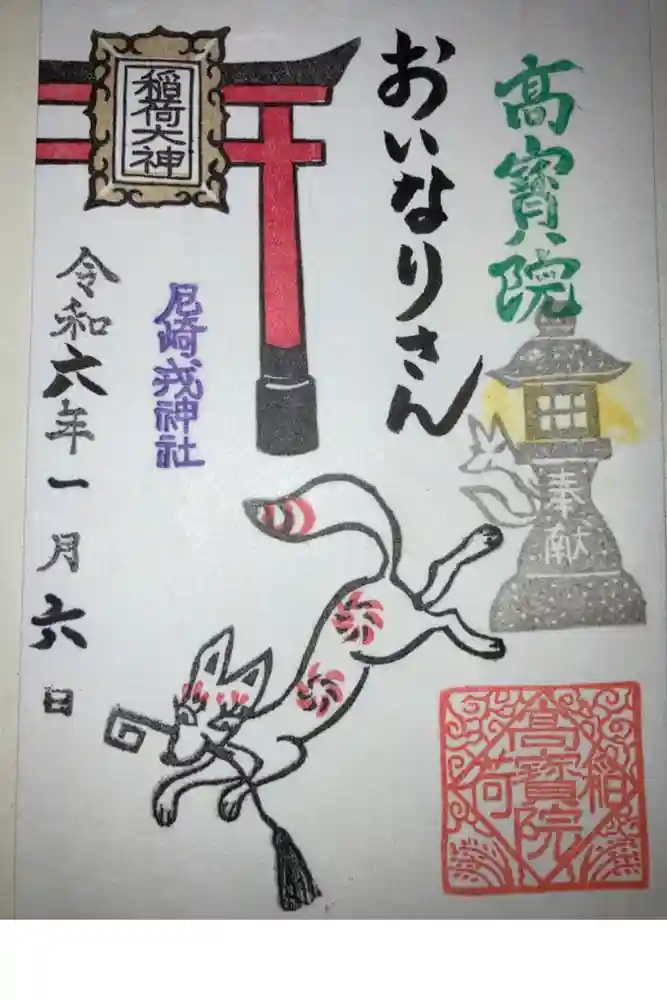 高寳院
奉献
おいなりさん
稲荷大神
尼崎戎神社
令和六年一月六日
稲荷
高寳院